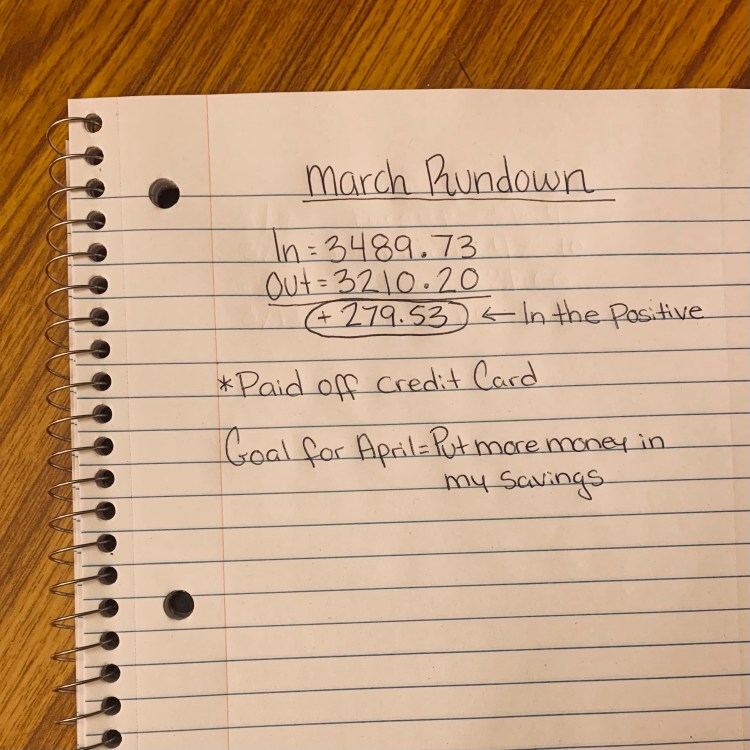 March Rundown
In = 3489.73
Out = 3210.20
+ 279.53 ← In the Positive
*Paid off credit Card
Goal for April = Put more money in
my savings